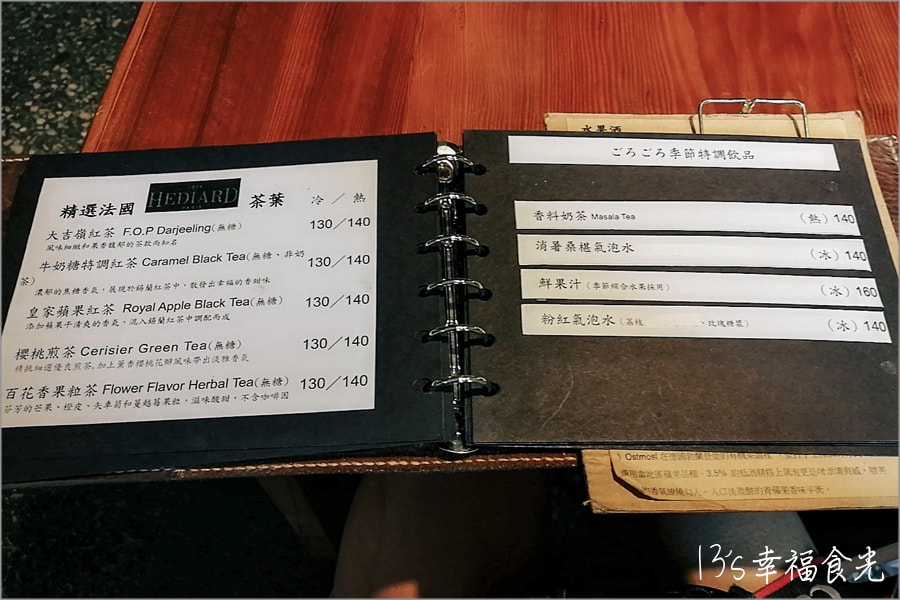 精選法國 HEDIARD PARIS 茶葉 冷／熱
大吉嶺紅茶 F.O.P Darjeeling(無糖) 130／140
風味細緻和果香馥郁的茶款而知名
牛奶糖特調紅茶 Caramel Black Tea(無糖、非奶茶) 130／140
濃郁的焦糖香氣，展現於錫蘭紅茶中，散發出幸福的香甜味
皇家蘋果紅茶 Royal Apple Black Tea(無糖) 130／140
添加蘋果干清爽的香氣，混入錫蘭紅茶中調配而成
櫻桃煎茶 Cerisier Green Tea(無糖) 130／140
精挑細選優良煎茶,加上薰香櫻桃花瓣風味帶出淡雅香氣
百花香果粒茶 Flower Flavor Herbal Tea(無糖) 130／140
芬芳的芒果、橙皮、矢車菊和蔓越莓果粒，滋味酸甜，不含咖啡因
水果酒
ごろごろ季節特調飲品
香料奶茶 Masala Tea (熱) 140
消暑桑椹氣泡水 (冰) 140
鮮果汁 (季節綜合水果採用) (冰) 160
粉紅氣泡水 (荔枝、玫瑰糖漿) (冰) 140
) Ostmost
3.5%
13's幸福食光